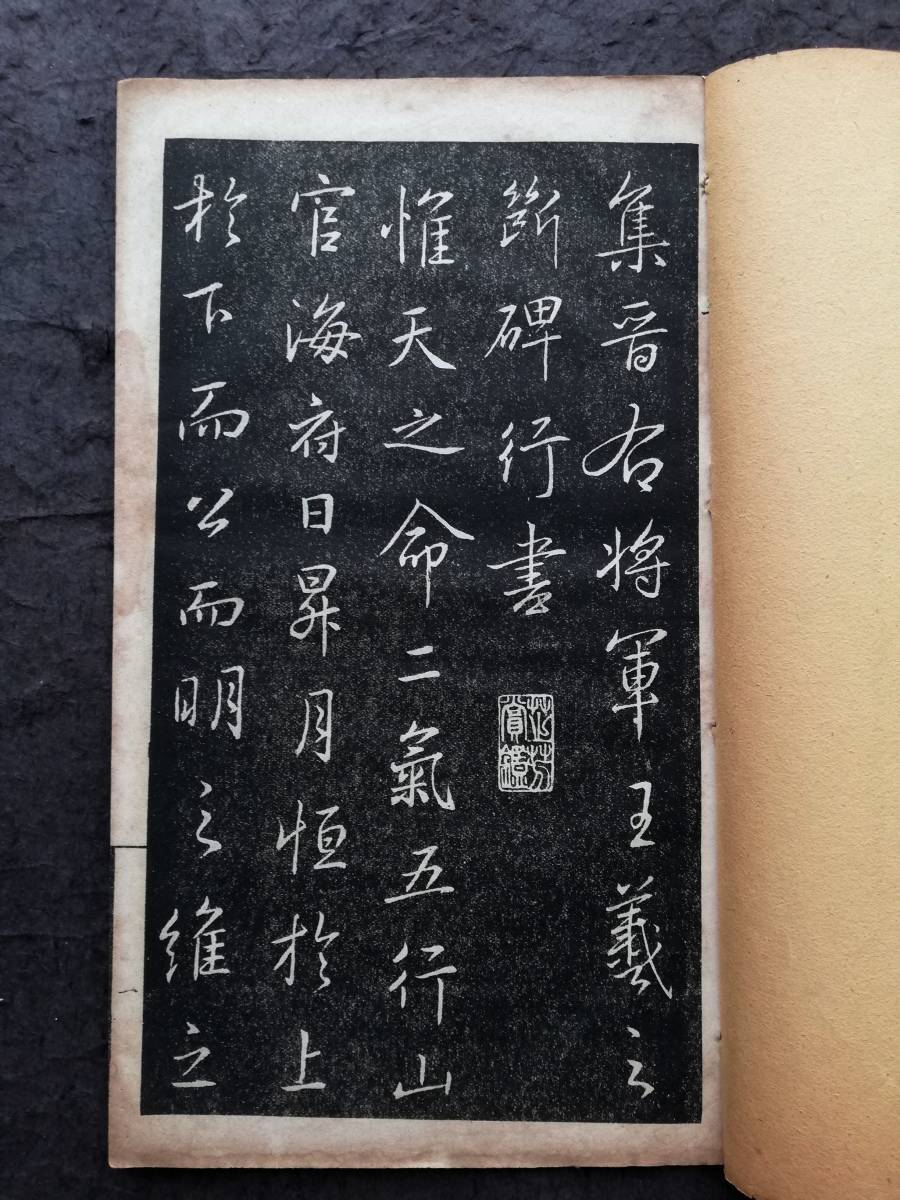 集晋右将軍王羲之
斷碑行書
芷芳賞鑑
惟天之命二氣五行山
官海府日昇月恒於上
於下而公而明之維之
一